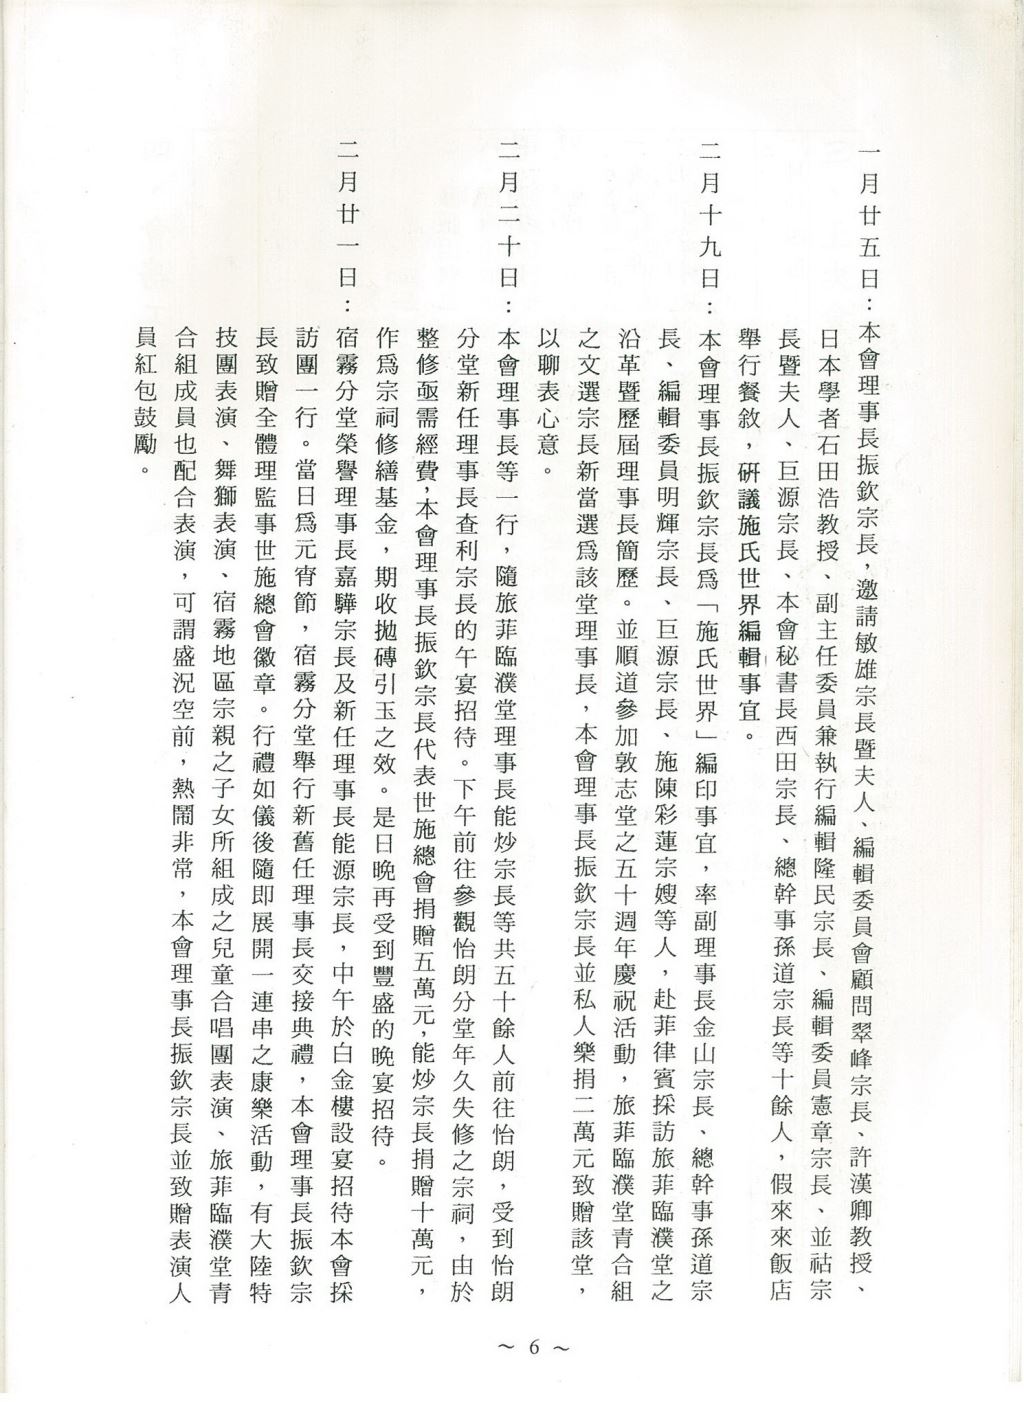 一月廿五日：本會理事長振欽宗長，邀請敏雄宗長暨夫人、編輯委員會顧問翠峰宗長、許漢卿教授、
日本學者石田浩教授、副主任委員兼執行編輯隆民宗長、編輯委員憲章宗長、並祜宗
長暨夫人、巨源宗長、本會秘書長西田宗長、總幹事孫道宗長等十餘人，假來來飯店
舉行餐敘，研議施氏世界編輯事宜。
二月十九日：本會理事長振欽宗長爲「施氏世界」編印事宜，率副理事長金山宗長、總幹事孫道宗
長、編輯委員明輝宗長、巨源宗長、施陳彩蓮宗嫂等人，赴菲律賓採訪旅菲臨濮堂之
沿革暨歷屆理事長簡歷。並順道參加敦志堂之五十週年慶祝活動，旅菲臨濮堂青合組
之文選宗長新當選爲該堂理事長，本會理事長振欽宗長並私人樂捐二萬元致贈該堂，
以聊表心意。
二月二十日：本會理事長等一行，隨旅菲臨濮堂理事長能炒宗長等共五十餘人前往怡朗，受到怡朗
分堂新任理事長查利宗長的午宴招待。下午前往參觀怡朗分堂年久失修之宗祠，由於
整修亟需經費，本會理事長振欽宗長代表世施總會捐贈五萬元，能炒宗長捐贈十萬元，
作爲宗祠修繕基金，期收拋磚引玉之效。是日晚再受到豐盛的晚宴招待。
二月廿一日：宿霧分堂榮譽理事長嘉驊宗長及新任理事長能源宗長，中午於白金樓設宴招待本會採
訪團一行。當日爲元宵節，宿霧分堂舉行新舊任理事長交接典禮，本會理事長振欽宗
長致贈全體理監事世施總會徽章。行禮如儀後隨即展開一連串之康樂活動，有大陸特
技團表演、舞獅表演、宿霧地區宗親之子女所組成之兒童合唱團表演、旅菲臨濮堂青
合組成員也配合表演，可謂盛況空前，熱鬧非常，本會理事長振欽宗長並致贈表演人
員紅包鼓勵。
～ 6 ～